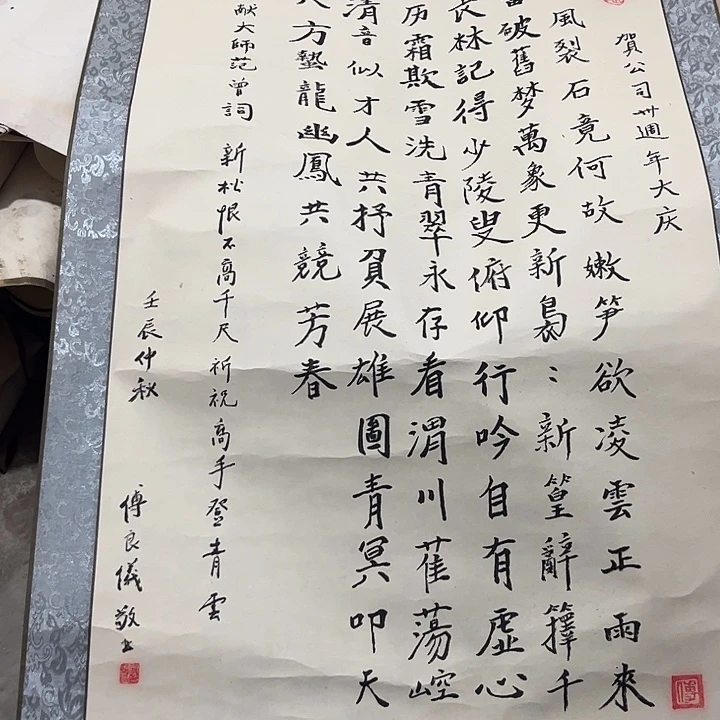 賀公司卅週年大庆
風裂石竟何故嫩笋欲凌雲正雨來
破舊梦萬象更新裊〻新篁辭籜千
丧林記得少陵叟俯仰行吟自有虚心
历霜欺雪洗青翠永存看渭川萑蕩崆
清音似才人共抒負展雄圖青冥叩天
八方藝龍幽鳳共競芳春
献大師范曾詞 新松恨不高千尺祈祝高手登青雲
壬辰仲秋
傅良儀敬书